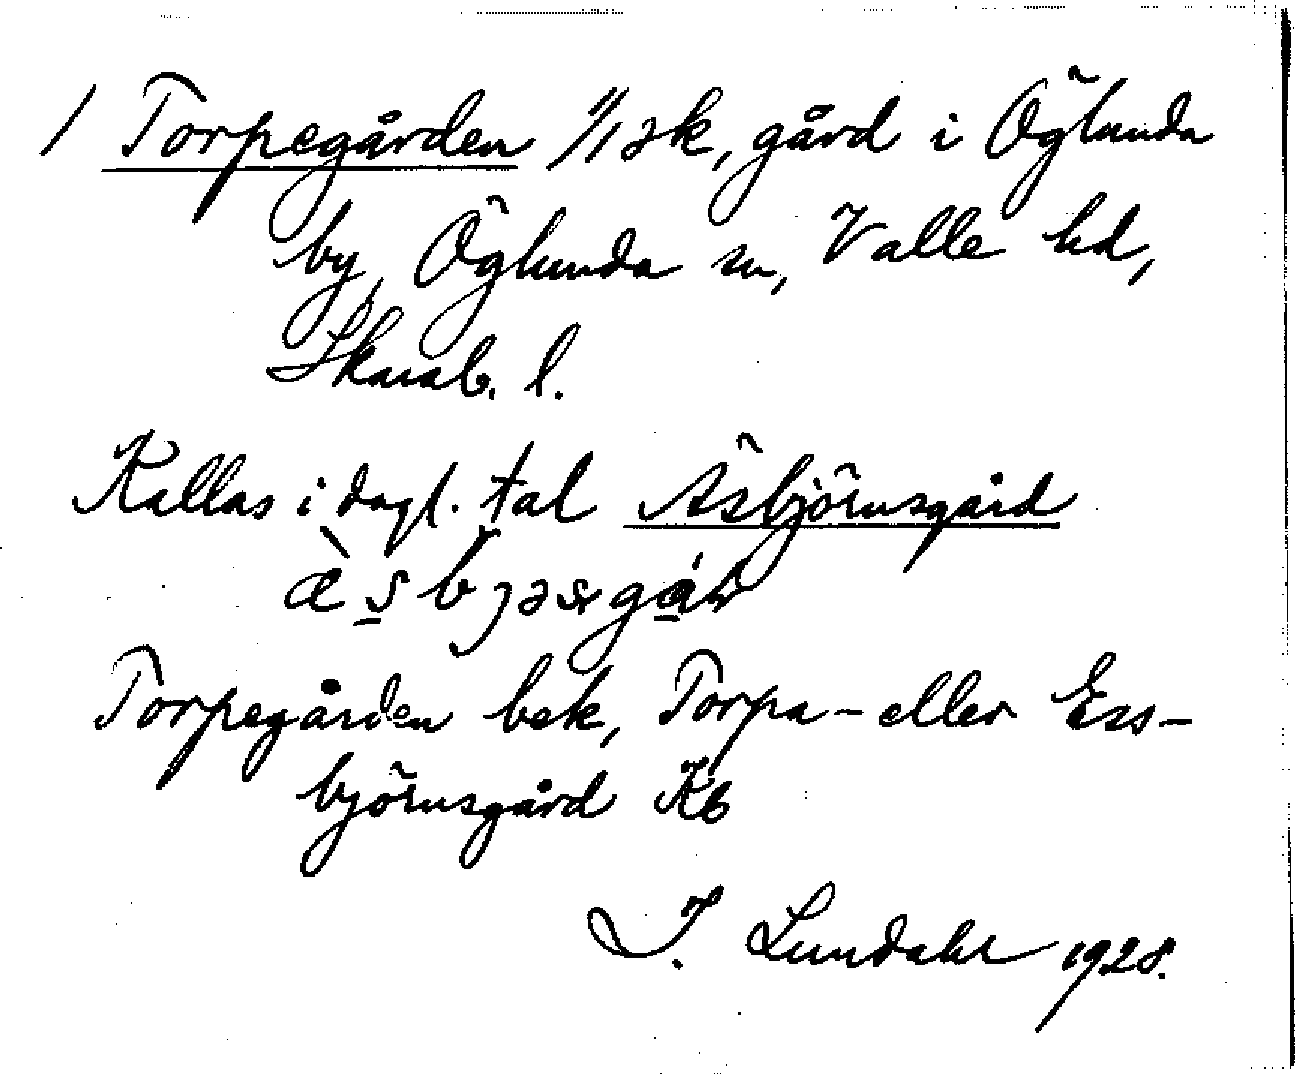 / Torpegården 1/1 sk, gård i Öglunda
by, Öglunda sn, Valle hd,
Skarab. l.
Kallas i dagl. tal Äsbjörnsgård
Torpegården bek, Torpa- eller Ess-
björnsgård Kb
I. Lundahl 1928.